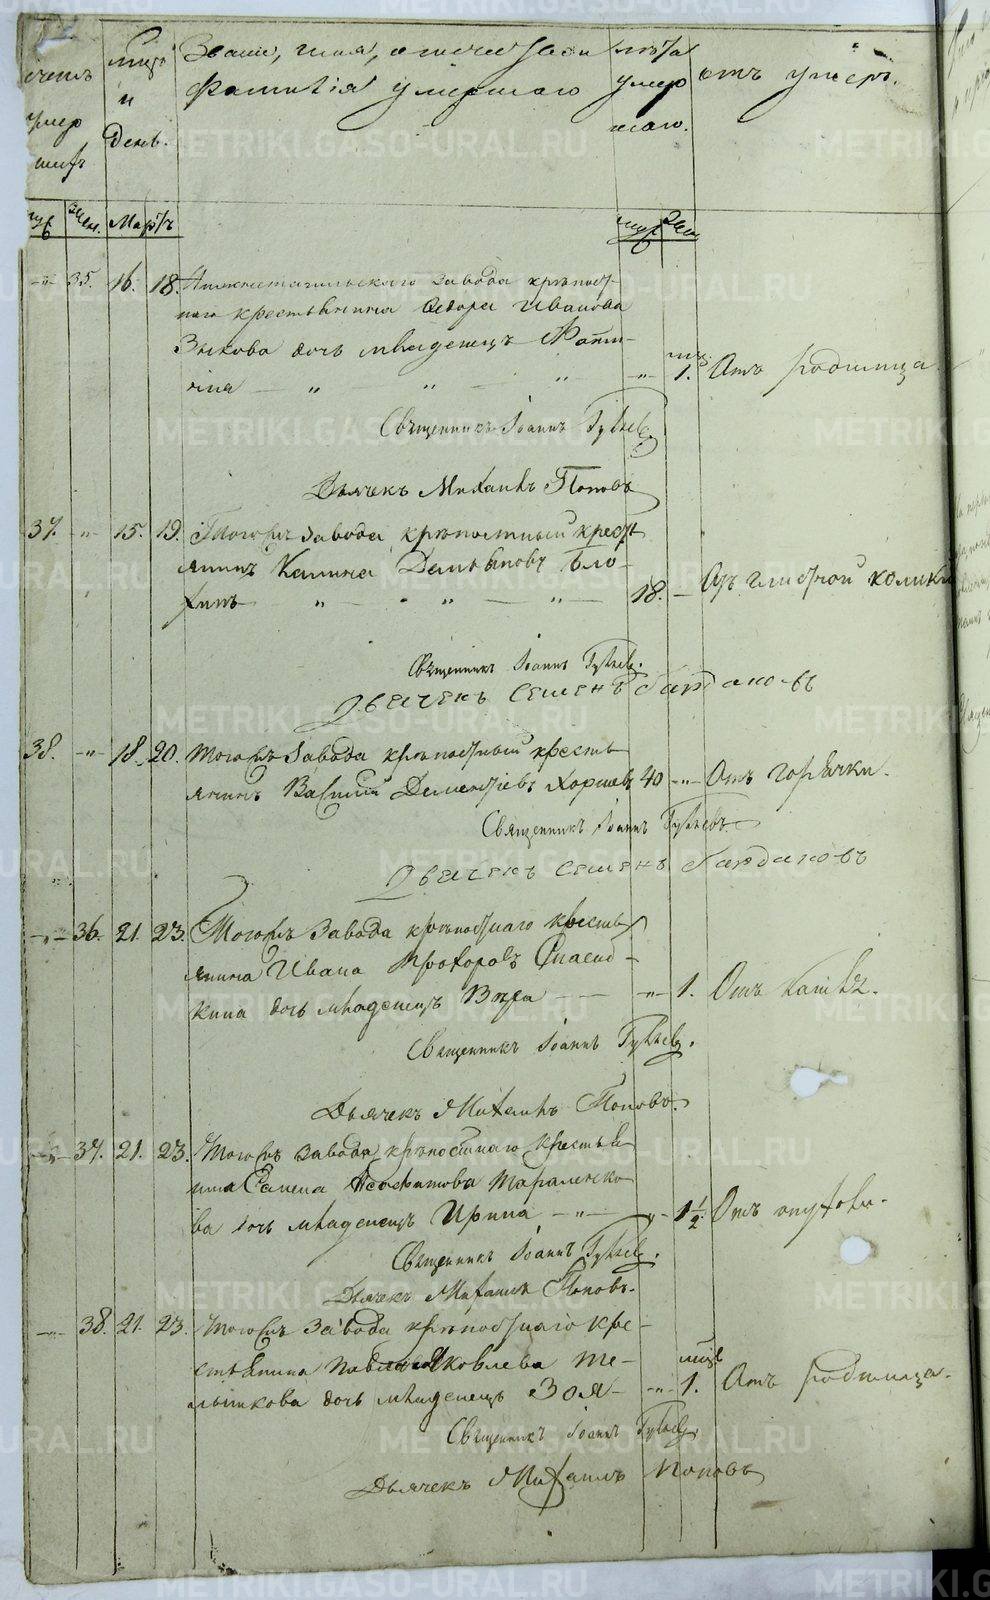 счетъ умершихъ
мѣсяцъ и день.
Званіе, имя, отчество и фамилія умершаго
лѣта умершаго.
отъ чего умеръ.
муж. жен. Мартъ муж. жен.
-"- 35. 16. 18. Нижнетагильскаго завода крѣпост-
наго крестьянина Ѳедора Иванова
Зыкова дочь младенецъ
-"- мѣс. 1. Отъ родимца.
Священникъ Іоаннъ
Дьячекъ Михаилъ Поповъ
37. -"- 15. 19. Тогожъ завода крѣпостный крест
янинъ Калина Демьяновъ Бло-
хинъ 18. - Отъ глистной колики
Священникъ Іоаннъ
Дьячекъ Семенъ
38. -"- 18. 20. Тогожъ завода крѣпостный кресть
янинъ Василій Дементьевъ 40 -"- Отъ горячки.
Священникъ Іоаннъ
Дьячекъ Семенъ
-"- 36. 21. 23. Тогожъ завода крѣпостнаго кресть
янина Ивана Прохорова
кина дочь младенецъ Вѣра -"- 1. Отъ кашля.
Священникъ Іоаннъ
Дьячекъ Михаилъ Поповъ.
-"- 37. 21. 23. Тогожъ завода крѣпостнаго крестья
нина
ва дочь младенецъ Ирина -"- 1 1/2 Отъ опухоли.
Священникъ Іоаннъ
Дьячекъ Михаилъ Поповъ.
-"- 38. 21. 23. Тогожъ завода крѣпостнаго кре-
стьянина Павла Яковлева Ме-
льникова дочь младенецъ Зоя -"- мѣс. 1. Отъ родимца.
Священникъ Іоаннъ
Дьячекъ Михаилъ Поповъ
METRIKI.GASO-URAL.RU